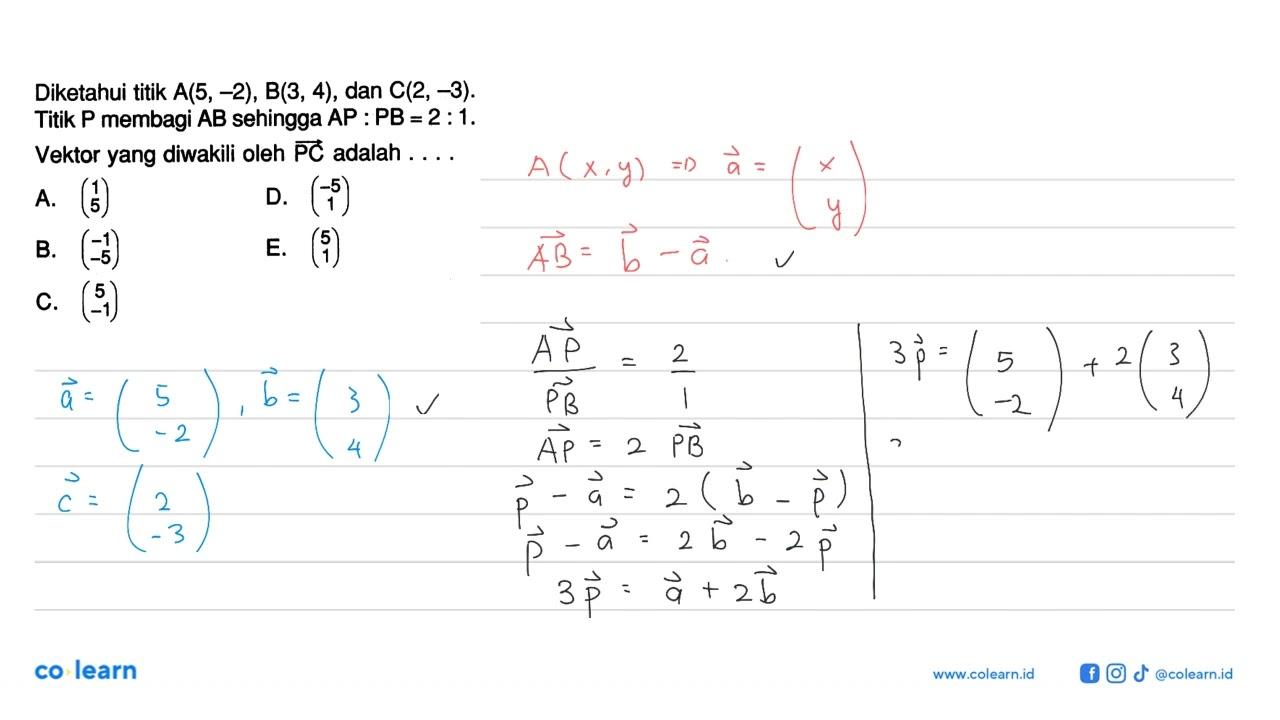 Diketahui titik A(5, –2), B(3, 4), dan C(2, –3).
Titik P membagi AB sehingga AP : PB = 2 : 1.
Vektor yang diwakili oleh \(\overrightarrow{PC}\) adalah . . . .
A. \(\begin{pmatrix} 1 \\ 5 \end{pmatrix}\) D. \(\begin{pmatrix} -5 \\ 1 \end{pmatrix}\)
B. \(\begin{pmatrix} -1 \\ -5 \end{pmatrix}\) E. \(\begin{pmatrix} 5 \\ 1 \end{pmatrix}\)
C. \(\begin{pmatrix} 5 \\ -1 \end{pmatrix}\)
\(\vec{a} = \begin{pmatrix} 5 \\ -2 \end{pmatrix}, \vec{b} = \begin{pmatrix} 3 \\ 4 \end{pmatrix}\) ✓
\(\vec{c} = \begin{pmatrix} 2 \\ -3 \end{pmatrix}\)
A(x, y) ⇒ \(\vec{a} = \begin{pmatrix} x \\ y \end{pmatrix}\)
\(\overrightarrow{AB} = \vec{b} - \vec{a}\). ✓
\(\frac{\overrightarrow{AP}}{\overrightarrow{PB}} = \frac{2}{1}\)
\(\overrightarrow{AP} = 2 \overrightarrow{PB}\)
\(\vec{p} - \vec{a} = 2(\vec{b} - \vec{p})\)
\(\vec{p} - \vec{a} = 2\vec{b} - 2\vec{p}\)
\(3\vec{p} = \vec{a} + 2\vec{b}\)
\(3\vec{p} = \begin{pmatrix} 5 \\ -2 \end{pmatrix} + 2\begin{pmatrix} 3 \\ 4 \end{pmatrix}\)
co learn
www.colearn.id @colearn.id